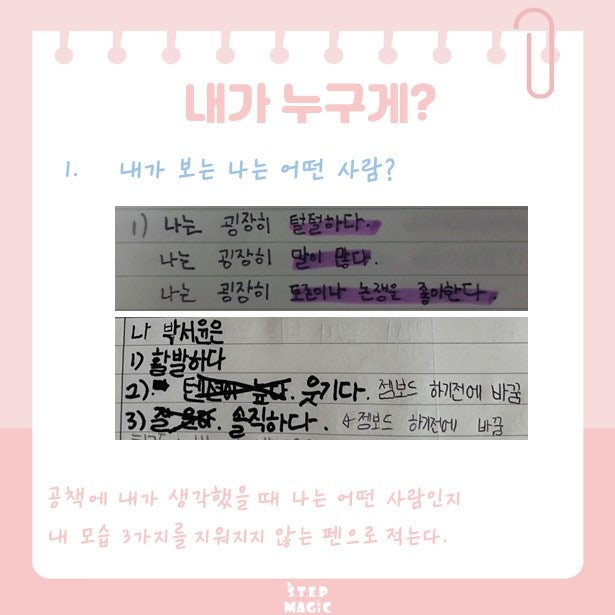 내가 누구게?
1. 내가 보는 나는 어떤 사람?
1) 나는 굉장히 털털하다.
나는 굉장히 말이 많다.
나는 굉장히 토론이나 논쟁을 좋아한다.
나 박서윤은
1) 활발하다
2) 텐션이 높다. 웃기다. 젬보드 하기전에 바꿈
3) 잘 웃다. 솔직하다. 젬보드 하기전에 바꿈
공책에 내가 생각했을 때 나는 어떤 사람인지
내 모습 3가지를 지워지지 않는 펜으로 적는다.
STEP
MAGIC